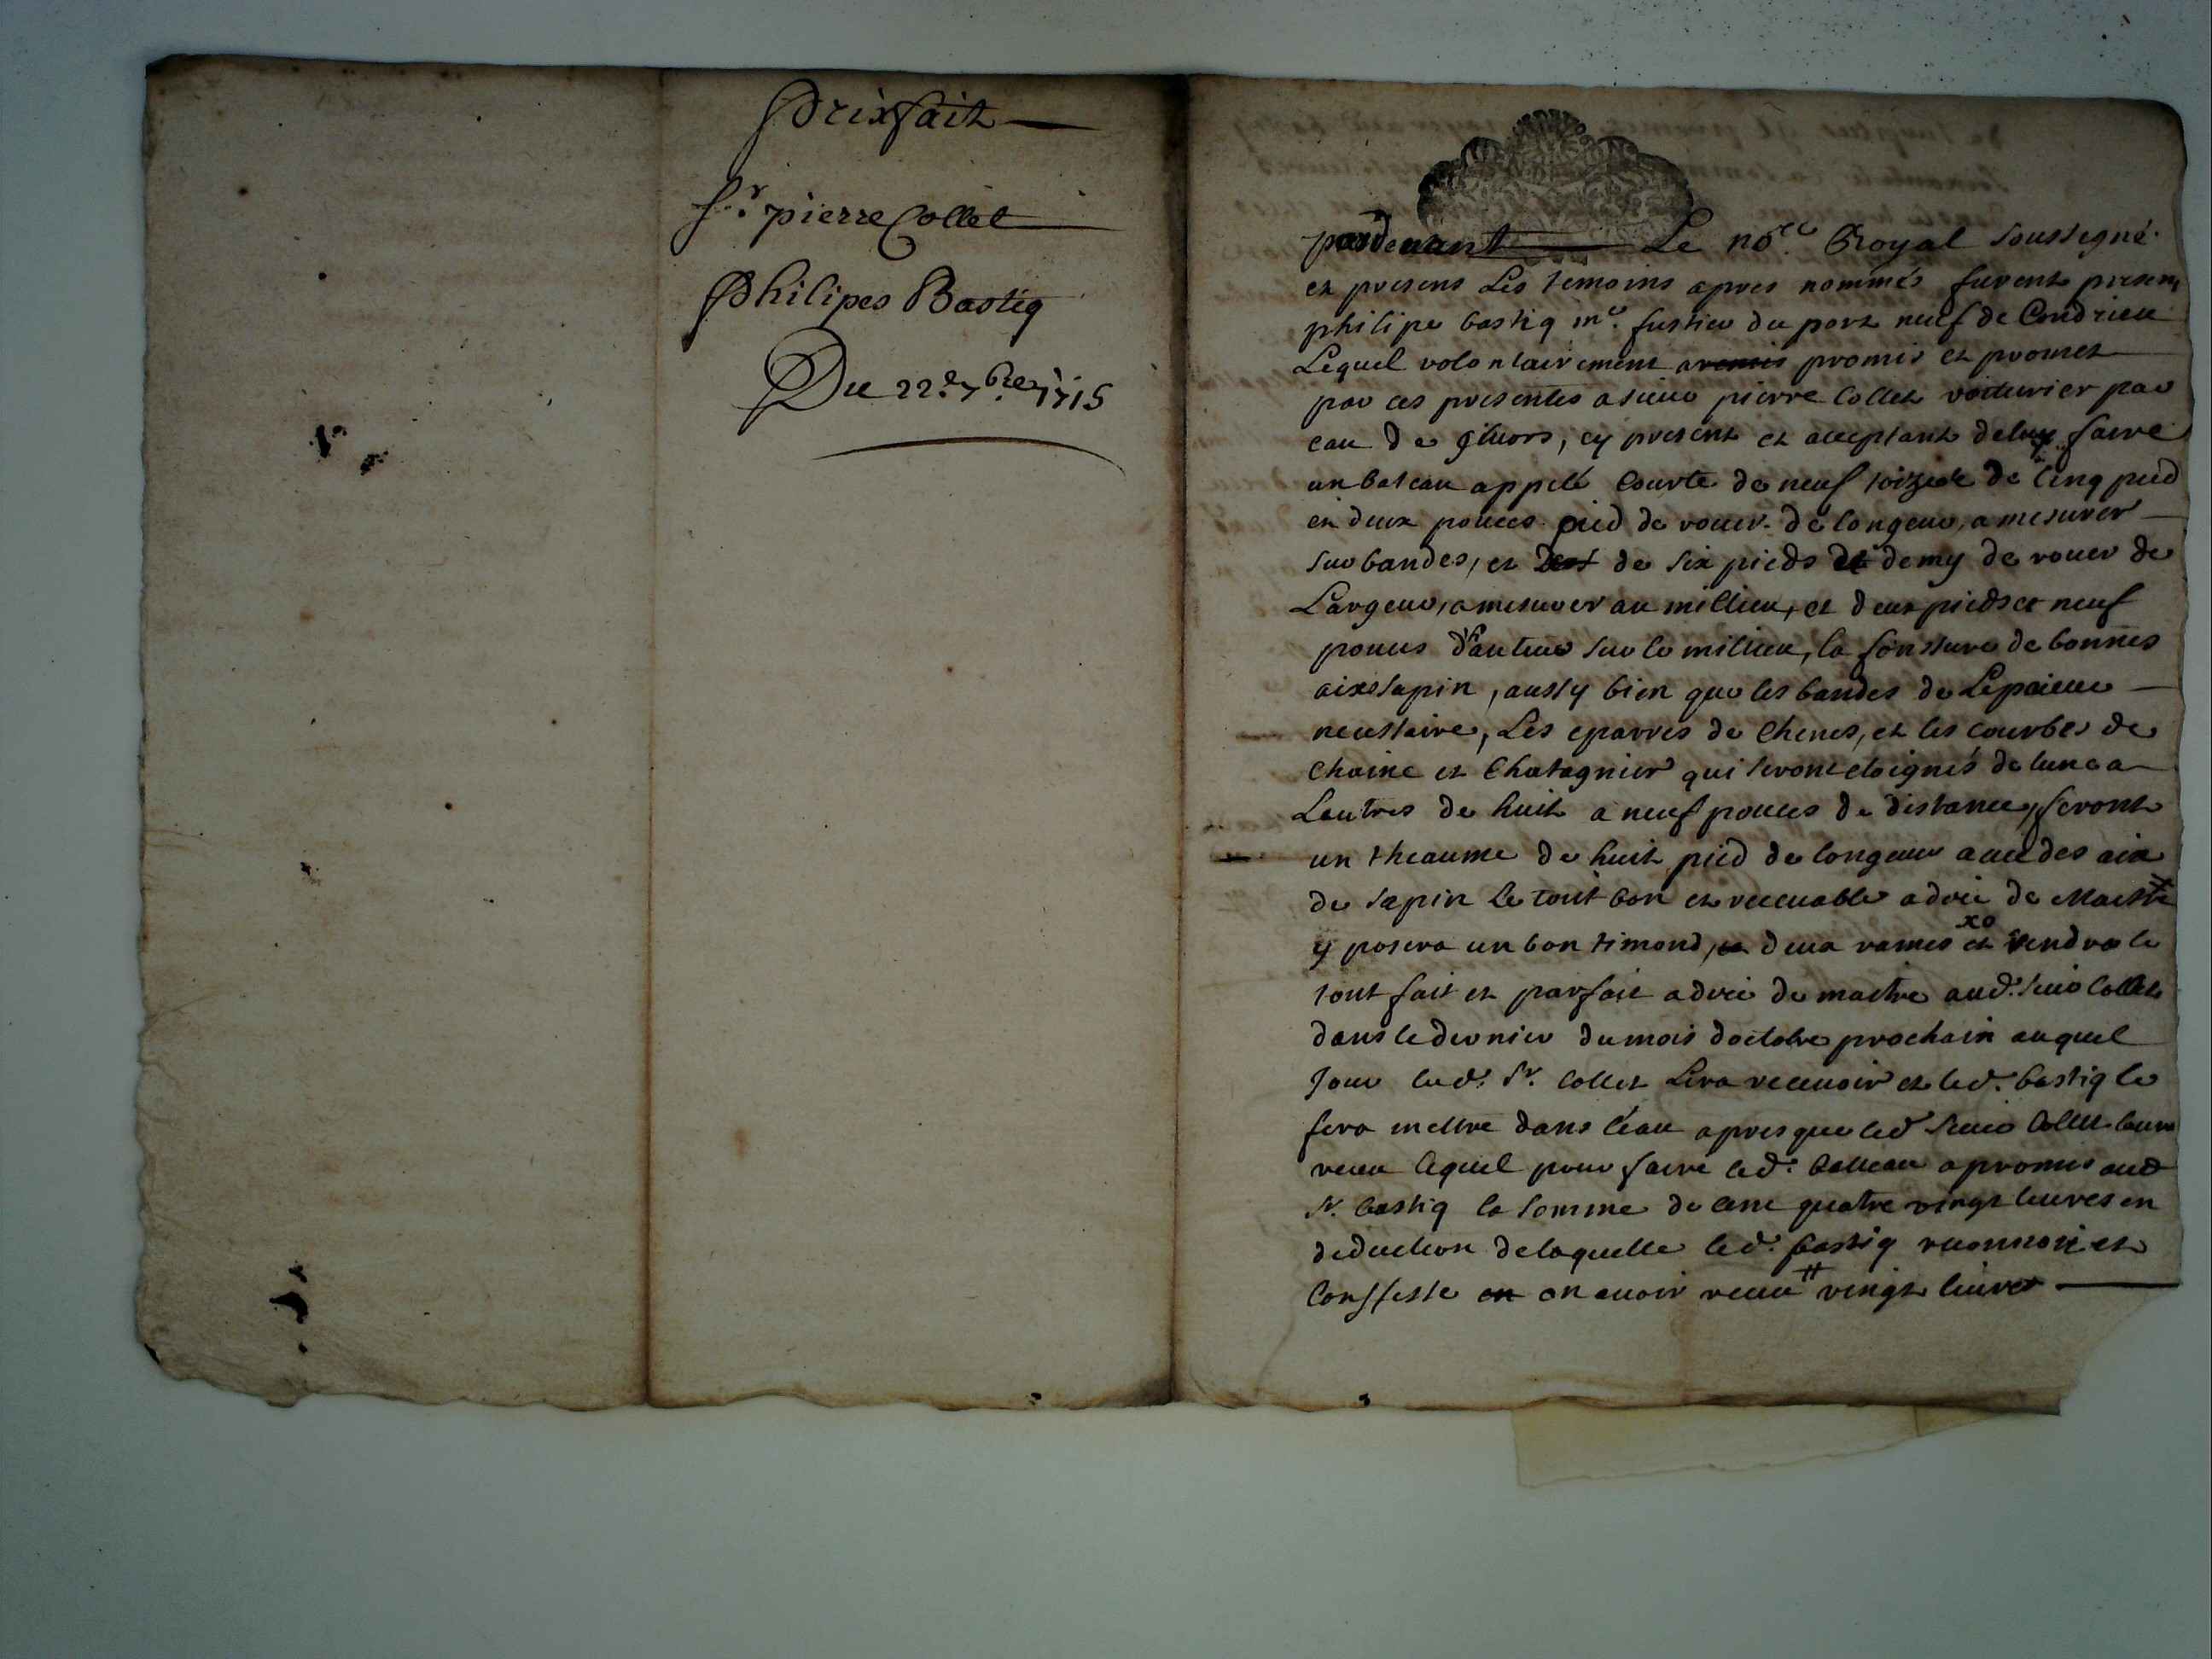 Prixfait
Sr. pierre Collet
Philipes Bastiq
Du 22e. 7bre. 1715
pardevant Le nore. Royal soussigné
et presens Les temoins apres nommés furent presens
philipe bastiq me. fustier du port neuf de Condrieu
Lequel volontairement a promis et promet
par ces presentes a sieur pierre Collet voiturier par
eau de givors, cy present et acceptant de luy faire
un bateau appelé Courte de neuf toizes de Cinq pied
et deux pouces pied de roner de longeur, a mesurer
sur bandes, et de six pieds et demy de roner de
Largeur, a mesurer au millieu, et deux pieds et neuf
pouces d'auteur sur le millieu, la fonssure de bonnes
aixs sapin, aussy bien que les bandes de Lepaiceur
necessaire, Les eparres de Chenes, et les courbes de
Chaine et Chatagnier qui seront eloignés de lune a
Lautres de huit a neuf pouces de distance, feront
un theaume de huit pied de longeur avec des aix
de sapin Le tout bon et recevable a dire de Maitre
y posera un bon timond, deux rames et rendra le
tout fait et parfait a dire de maitre aud. sieur Collet
dans le dernier du mois doctobre prochain auquel
Jour led. Sr. Collet Lira recevoir et led. bastiq le
fera mettre dans l'eau apres que led sieur Collet laura
receu lequel pour faire led. batteau a promis aud
Sr. bastiq la somme de cent quatre vingt livres en
deduction de laquelle led. bastiq reconnoit et
Conffesse en avoir receu vingt livres